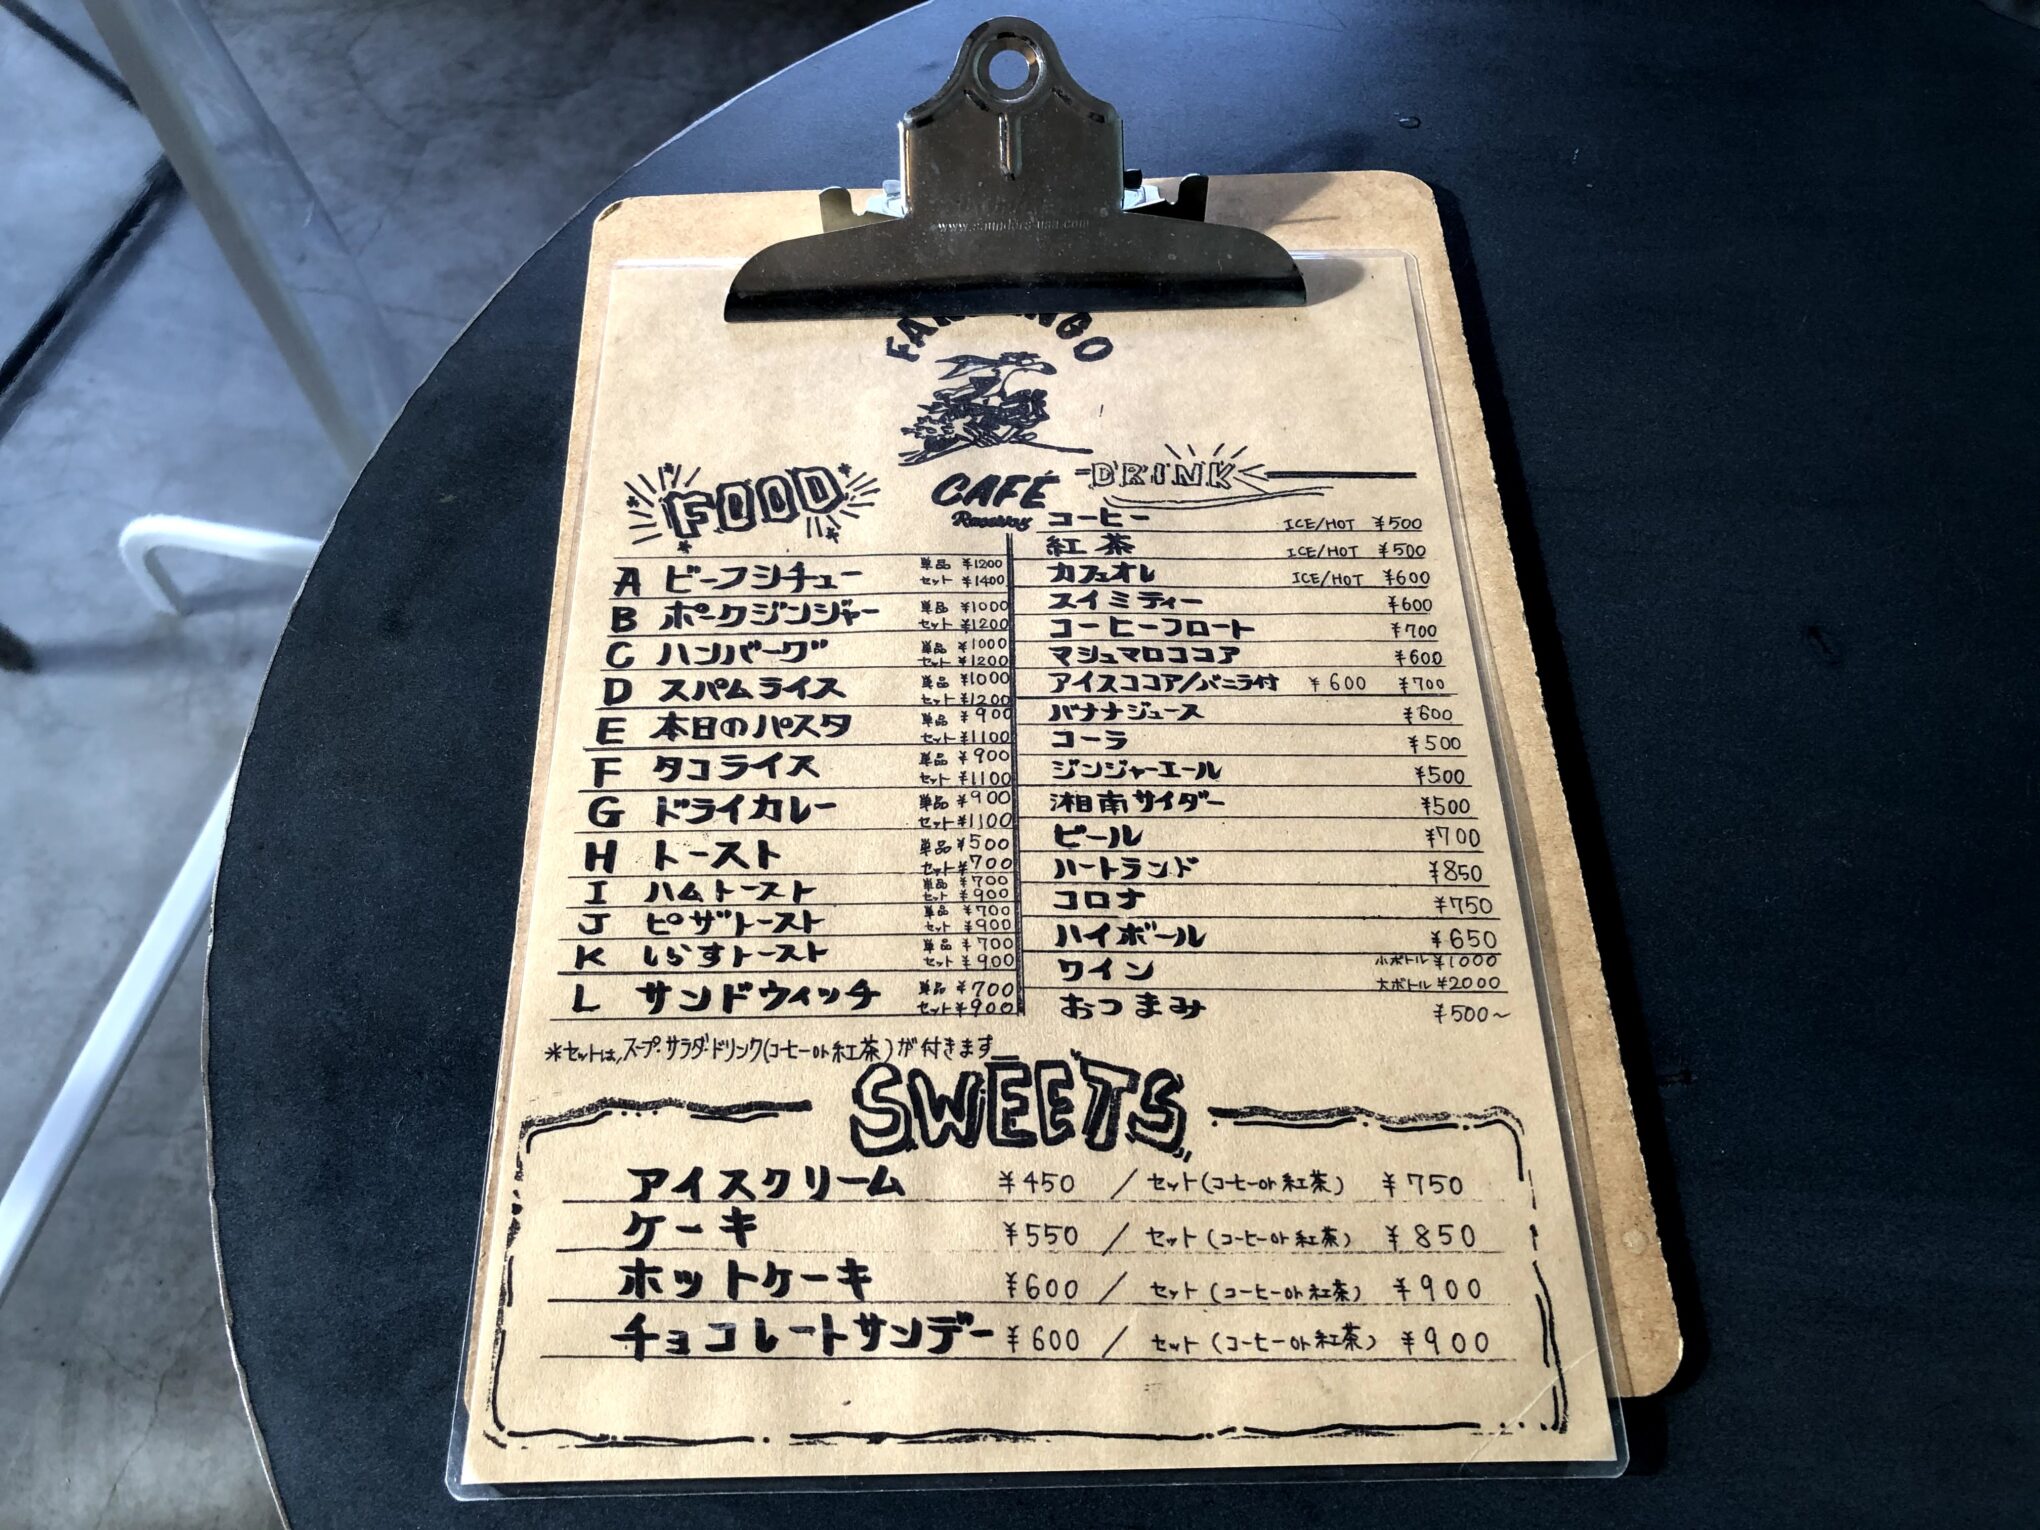 www.saunders-usa.com
CAFÉ
Raceway
FOOD
A ビーフシチュー 単品 ¥1200 セット ¥1400
B ポークジンジャー 単品 ¥1000 セット ¥1200
C ハンバーグ 単品 ¥1000 セット ¥1200
D スパムライス 単品 ¥1000 セット ¥1200
E 本日のパスタ 単品 ¥900 セット ¥1100
F タコライス 単品 ¥900 セット ¥1100
G ドライカレー 単品 ¥900 セット ¥1100
H トースト 単品 ¥500 セット ¥700
I ハムトースト 単品 ¥700 セット ¥900
J ピザトースト 単品 ¥700 セット ¥900
K しらすトースト 単品 ¥700 セット ¥900
L サンドウィッチ 単品 ¥700 セット ¥900
※セットは、スープ・サラダ・ドリンク(コーヒー or 紅茶)が付きます
DRINK
コーヒー ICE/HOT ¥500
紅茶 ICE/HOT ¥500
カフェオレ ICE/HOT ¥600
スイミティー ¥600
コーヒーフロート ¥700
マシュマロココア ¥600
アイスココア/バニラ付 ¥600 ¥700
バナナジュース ¥600
コーラ ¥500
ジンジャーエール ¥500
湘南サイダー ¥500
ビール ¥700
ハートランド ¥850
コロナ ¥750
ハイボール ¥650
ワイン 小ボトル ¥1000 大ボトル ¥2000
おつまみ ¥500〜
SWEETS
アイスクリーム ¥450 / セット(コーヒー or 紅茶) ¥750
ケーキ ¥550 / セット(コーヒー or 紅茶) ¥850
ホットケーキ ¥600 / セット(コーヒー or 紅茶) ¥900
チョコレートサンデー ¥600 / セット(コーヒー or 紅茶) ¥900